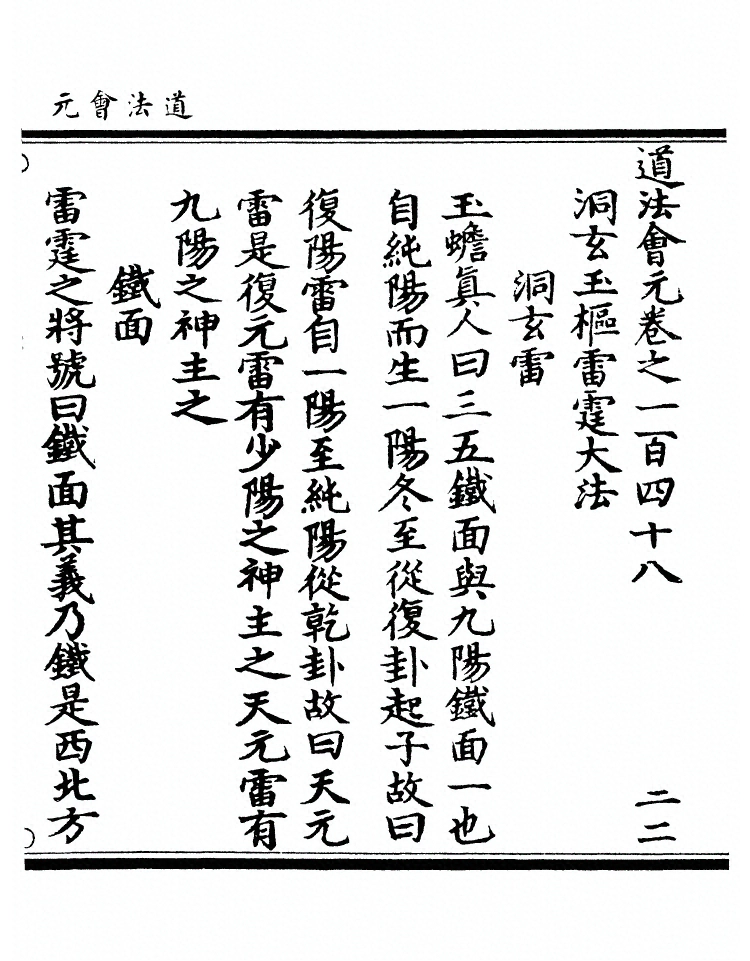 道法會元
道法會元卷之一百四十八 二二
洞玄玉樞雷霆大法
洞玄雷
玉蟾真人曰三五鐵面與九陽鐵面一也
自純陽而生一陽冬至從復卦起子故曰
復陽雷自一陽至純陽從乾卦故曰天元
雷是復元雷有少陽之神主之天元雷有
九陽之神主之
鐵面
雷霆之將號曰鐵面其義乃鐵是西北方